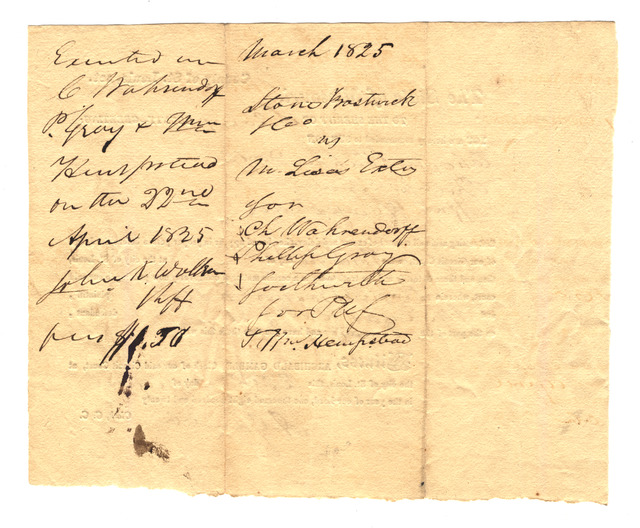 Executed on
C Wahrendorff
P. Gray & Wm
Hempstead
on the 22nd
April 1825
John K. Walker
Shff
fees $1.50
March 1825
Stone Bostwick
& Co
vs
M Lisas Exters
for
Ch Wahrendorff
Phillip Gray
forthwith
for Plff
Wm Hempstead